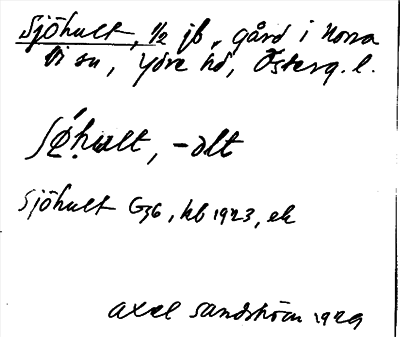 Sjöhult, 1/2 jb, gård i Norra
Vi sn, Ydre hd, Österg. l.
-olt
Sjöhult G36, hb 1923, ek
Axel Sandström 1929